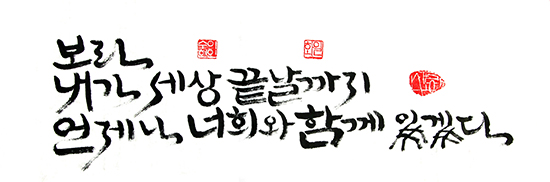 보라,
내가 세상 끝날까지
언제나 너희와 함께 있겠다